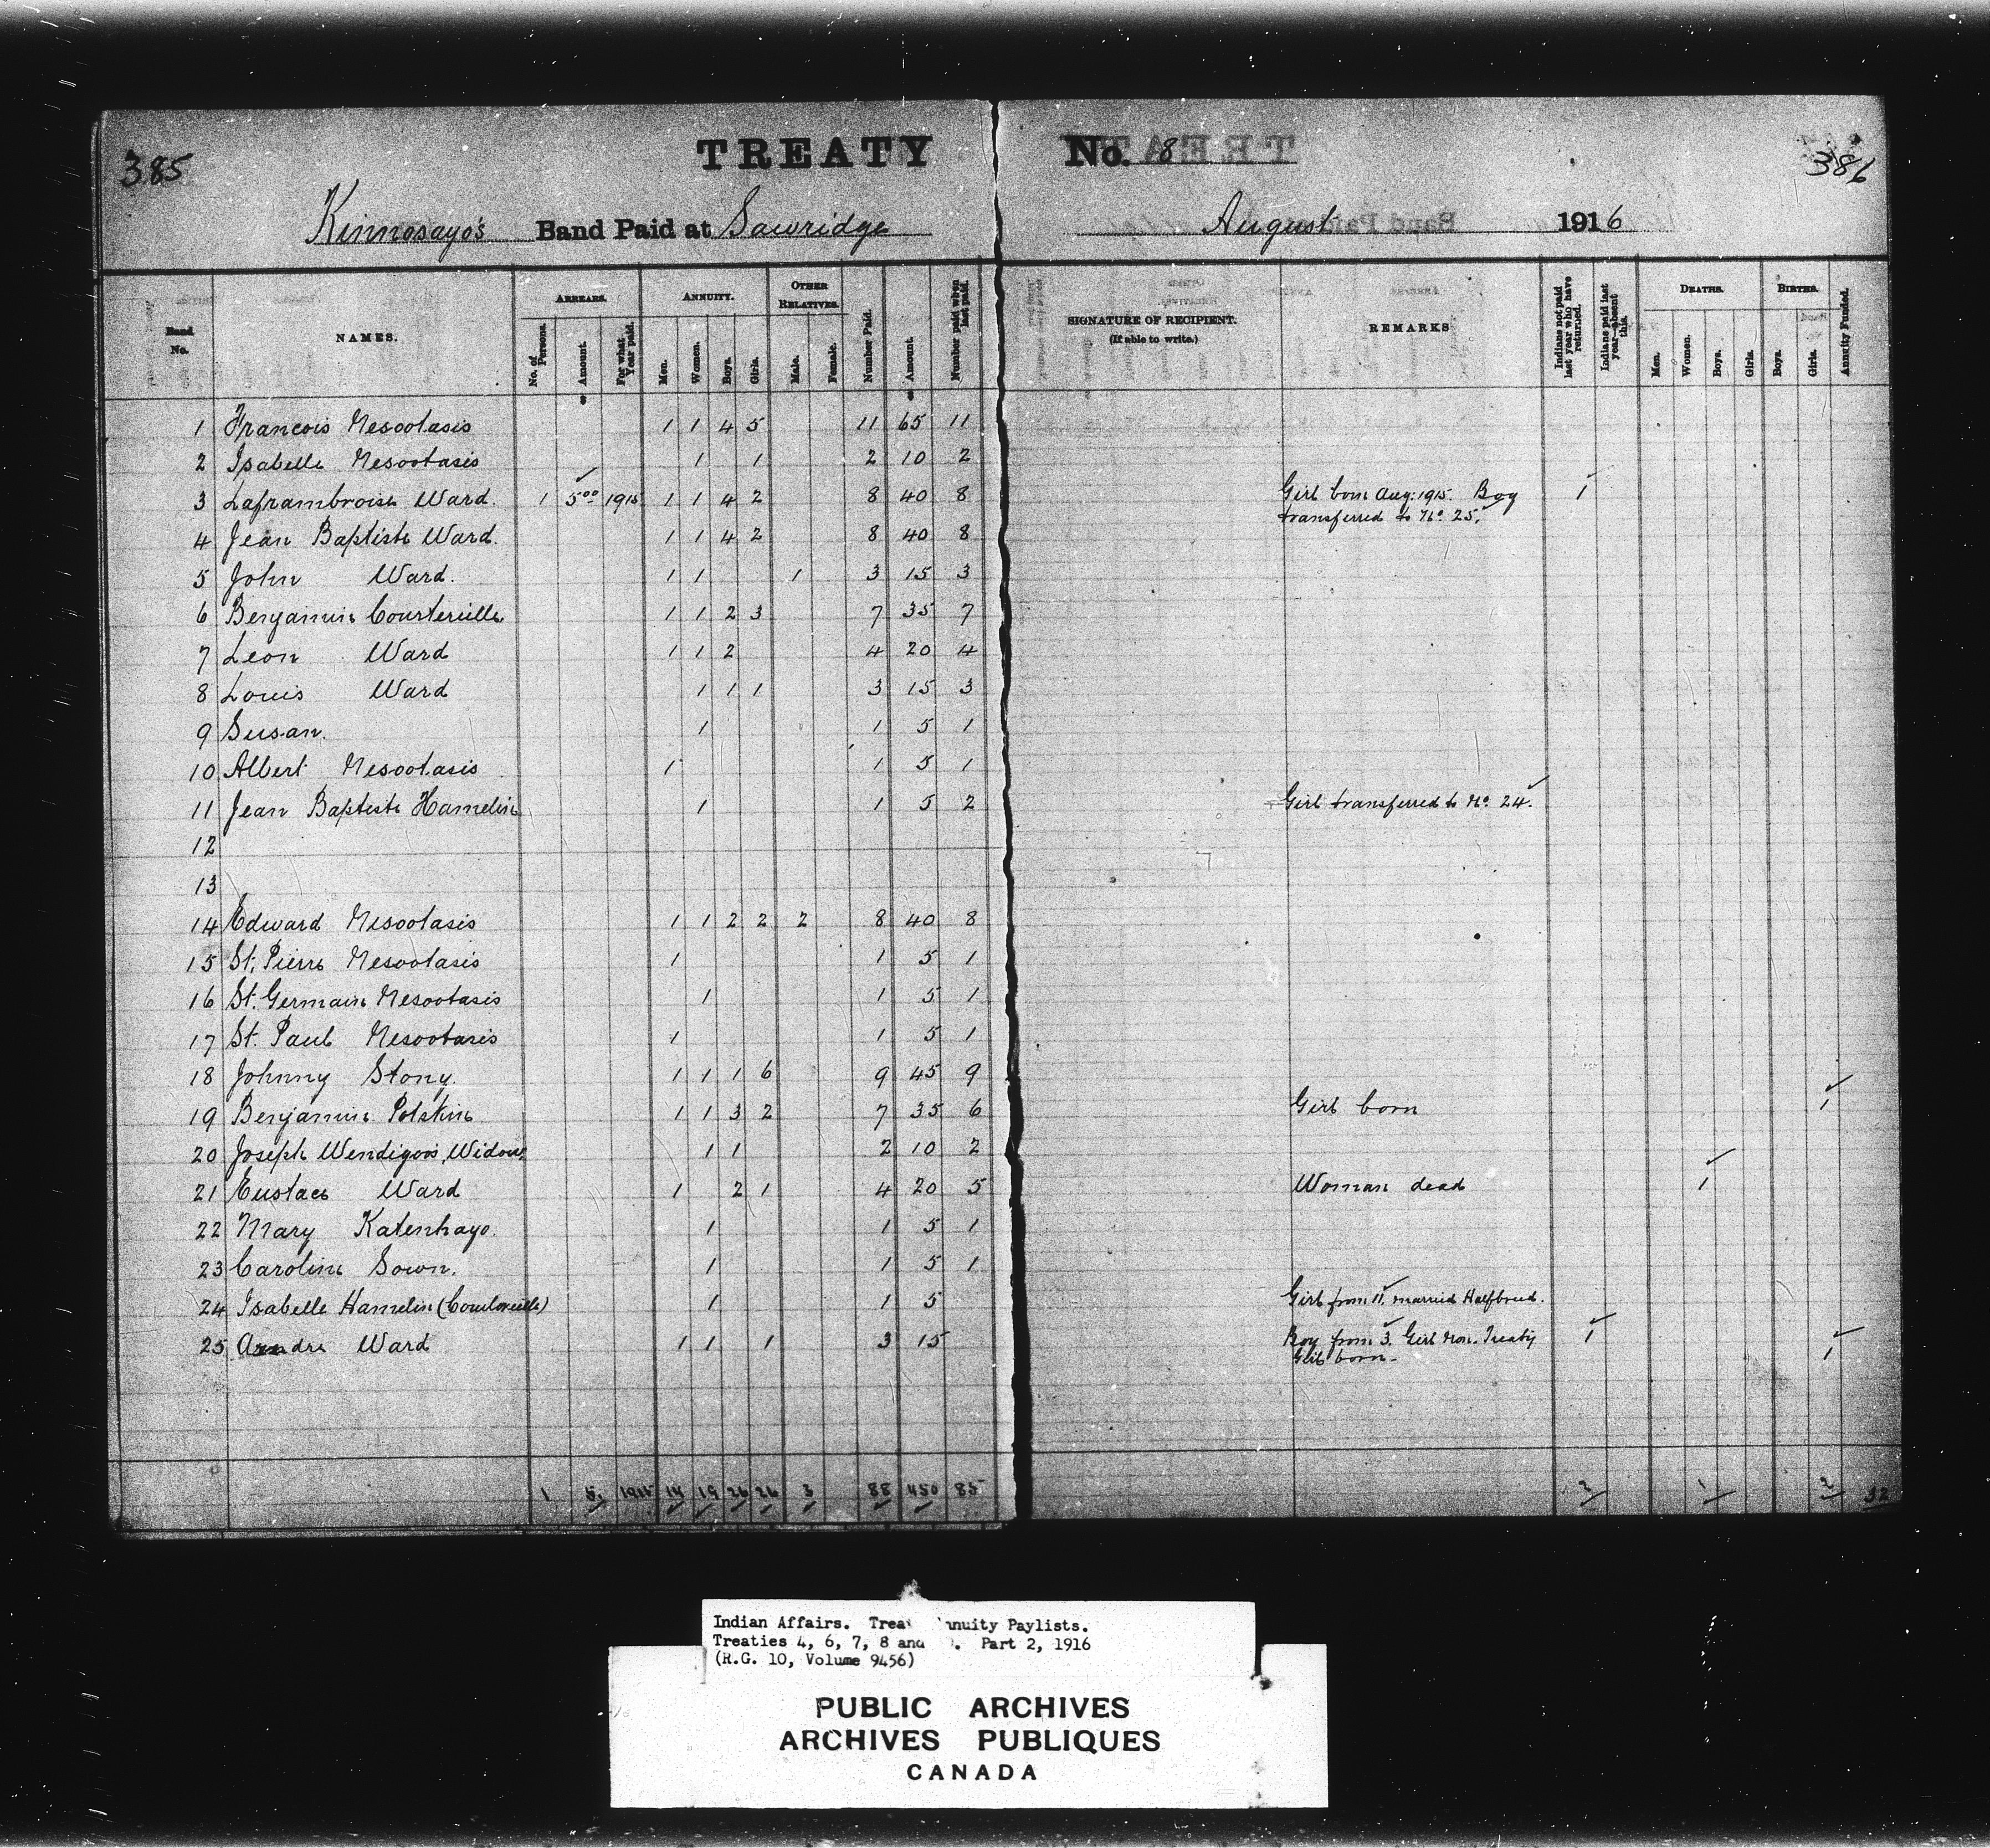 385
TREATY No. 8
386
Kinnosayo's Band Paid at Sawridge August 1916
Band No. NAMES. ARREARS. No. of Persons. Amount. For what Year paid. ANNUITY. Men. Women. Boys. Girls. OTHER RELATIVES. Male. Female. Number Paid. Amount. Number paid when last paid. SIGNATURE OF RECIPIENT. (If able to write.) REMARKS Indians not paid last year who have returned. Indians paid last year—absent this. DEATHS. Men. Women. Boys. Girls. BIRTHS. Boys. Girls. Annuity Funded.
1 Francois Nesootasis 1 1 4 5 11 65 11
2 Isabelle Nesootasis 1 1 2 10 2
3 Laframbroise Ward. 1 5.00 1915 1 1 4 2 8 40 8 Girl born Aug. 1915. Boy 1
transferred to No. 25.
4 Jean Baptiste Ward. 1 1 4 2 8 40 8
5 John Ward. 1 1 1 3 15 3
6 Benjamin Courtereille. 1 1 2 3 7 35 7
7 Leon Ward 1 1 2 4 20 4
8 Louis Ward 1 1 1 3 15 3
9 Susan. 1 1 5 1
10 Albert Nesootasis 1 1 5 1
11 Jean Baptiste Hamelin 1 1 5 2 Girl transferred to No. 24.
12
13
14 Edward Nesootasis 1 1 2 2 2 8 40 8
15 St. Pierre Nesootasis 1 1 5 1
16 St. Germain Nesootasis 1 1 5 1
17 St. Paul Nesootasis 1 1 5 1
18 Johnny Stony. 1 1 1 6 9 45 9
19 Benjamin Potskin 1 1 3 2 7 35 6 Girl born 1
20 Joseph Wendigoo's Widow. 1 1 2 10 2
21 Eustace Ward 1 2 1 4 20 5 Woman dead 1
22 Mary Katenhayo. 1 1 5 1
23 Caroline Sown. 1 1 5 1
24 Isabelle Hamelin (Courtoreille) 1 1 5 Girl from 11. married Halfbreed.
25 Andre Ward 1 1 1 3 15 Boy from 3. Girl Non. Treaty 1 1
Girl born.
1 5. 1915 14 19 26 26 3 88 450 85 2 1 2 32
Indian Affairs. Trea nnuity Paylists.
Treaties 4, 6, 7, 8 and . Part 2, 1916
(R.G. 10, Volume 9456)
PUBLIC ARCHIVES
ARCHIVES PUBLIQUES
CANADA